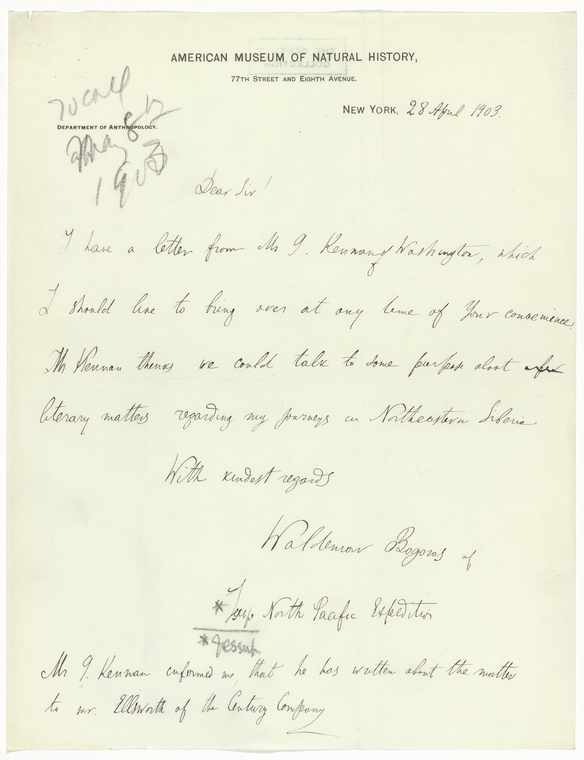 AMERICAN MUSEUM OF NATURAL HISTORY,
77TH STREET AND EIGHTH AVENUE.
NEW YORK, 28 April 1903.
To call
DEPARTMENT OF ANTHROPOLOGY.
May 8th
1903
Dear Sir!
I have a letter from Mr G. Kennan of Washington, which
I should like to bring over at any time of Your convenience.
Mr Kennan thinks we could talk to some purpose about
literary matters regarding my journeys in Northeastern Siberia
With kindest regards
Waldemar Bogoras of
* Jesup North Pacific Expedition
* Jessup
Mr G. Kennan informed me, that he has written about the matter
to mr. Ellsworth of the Century Company